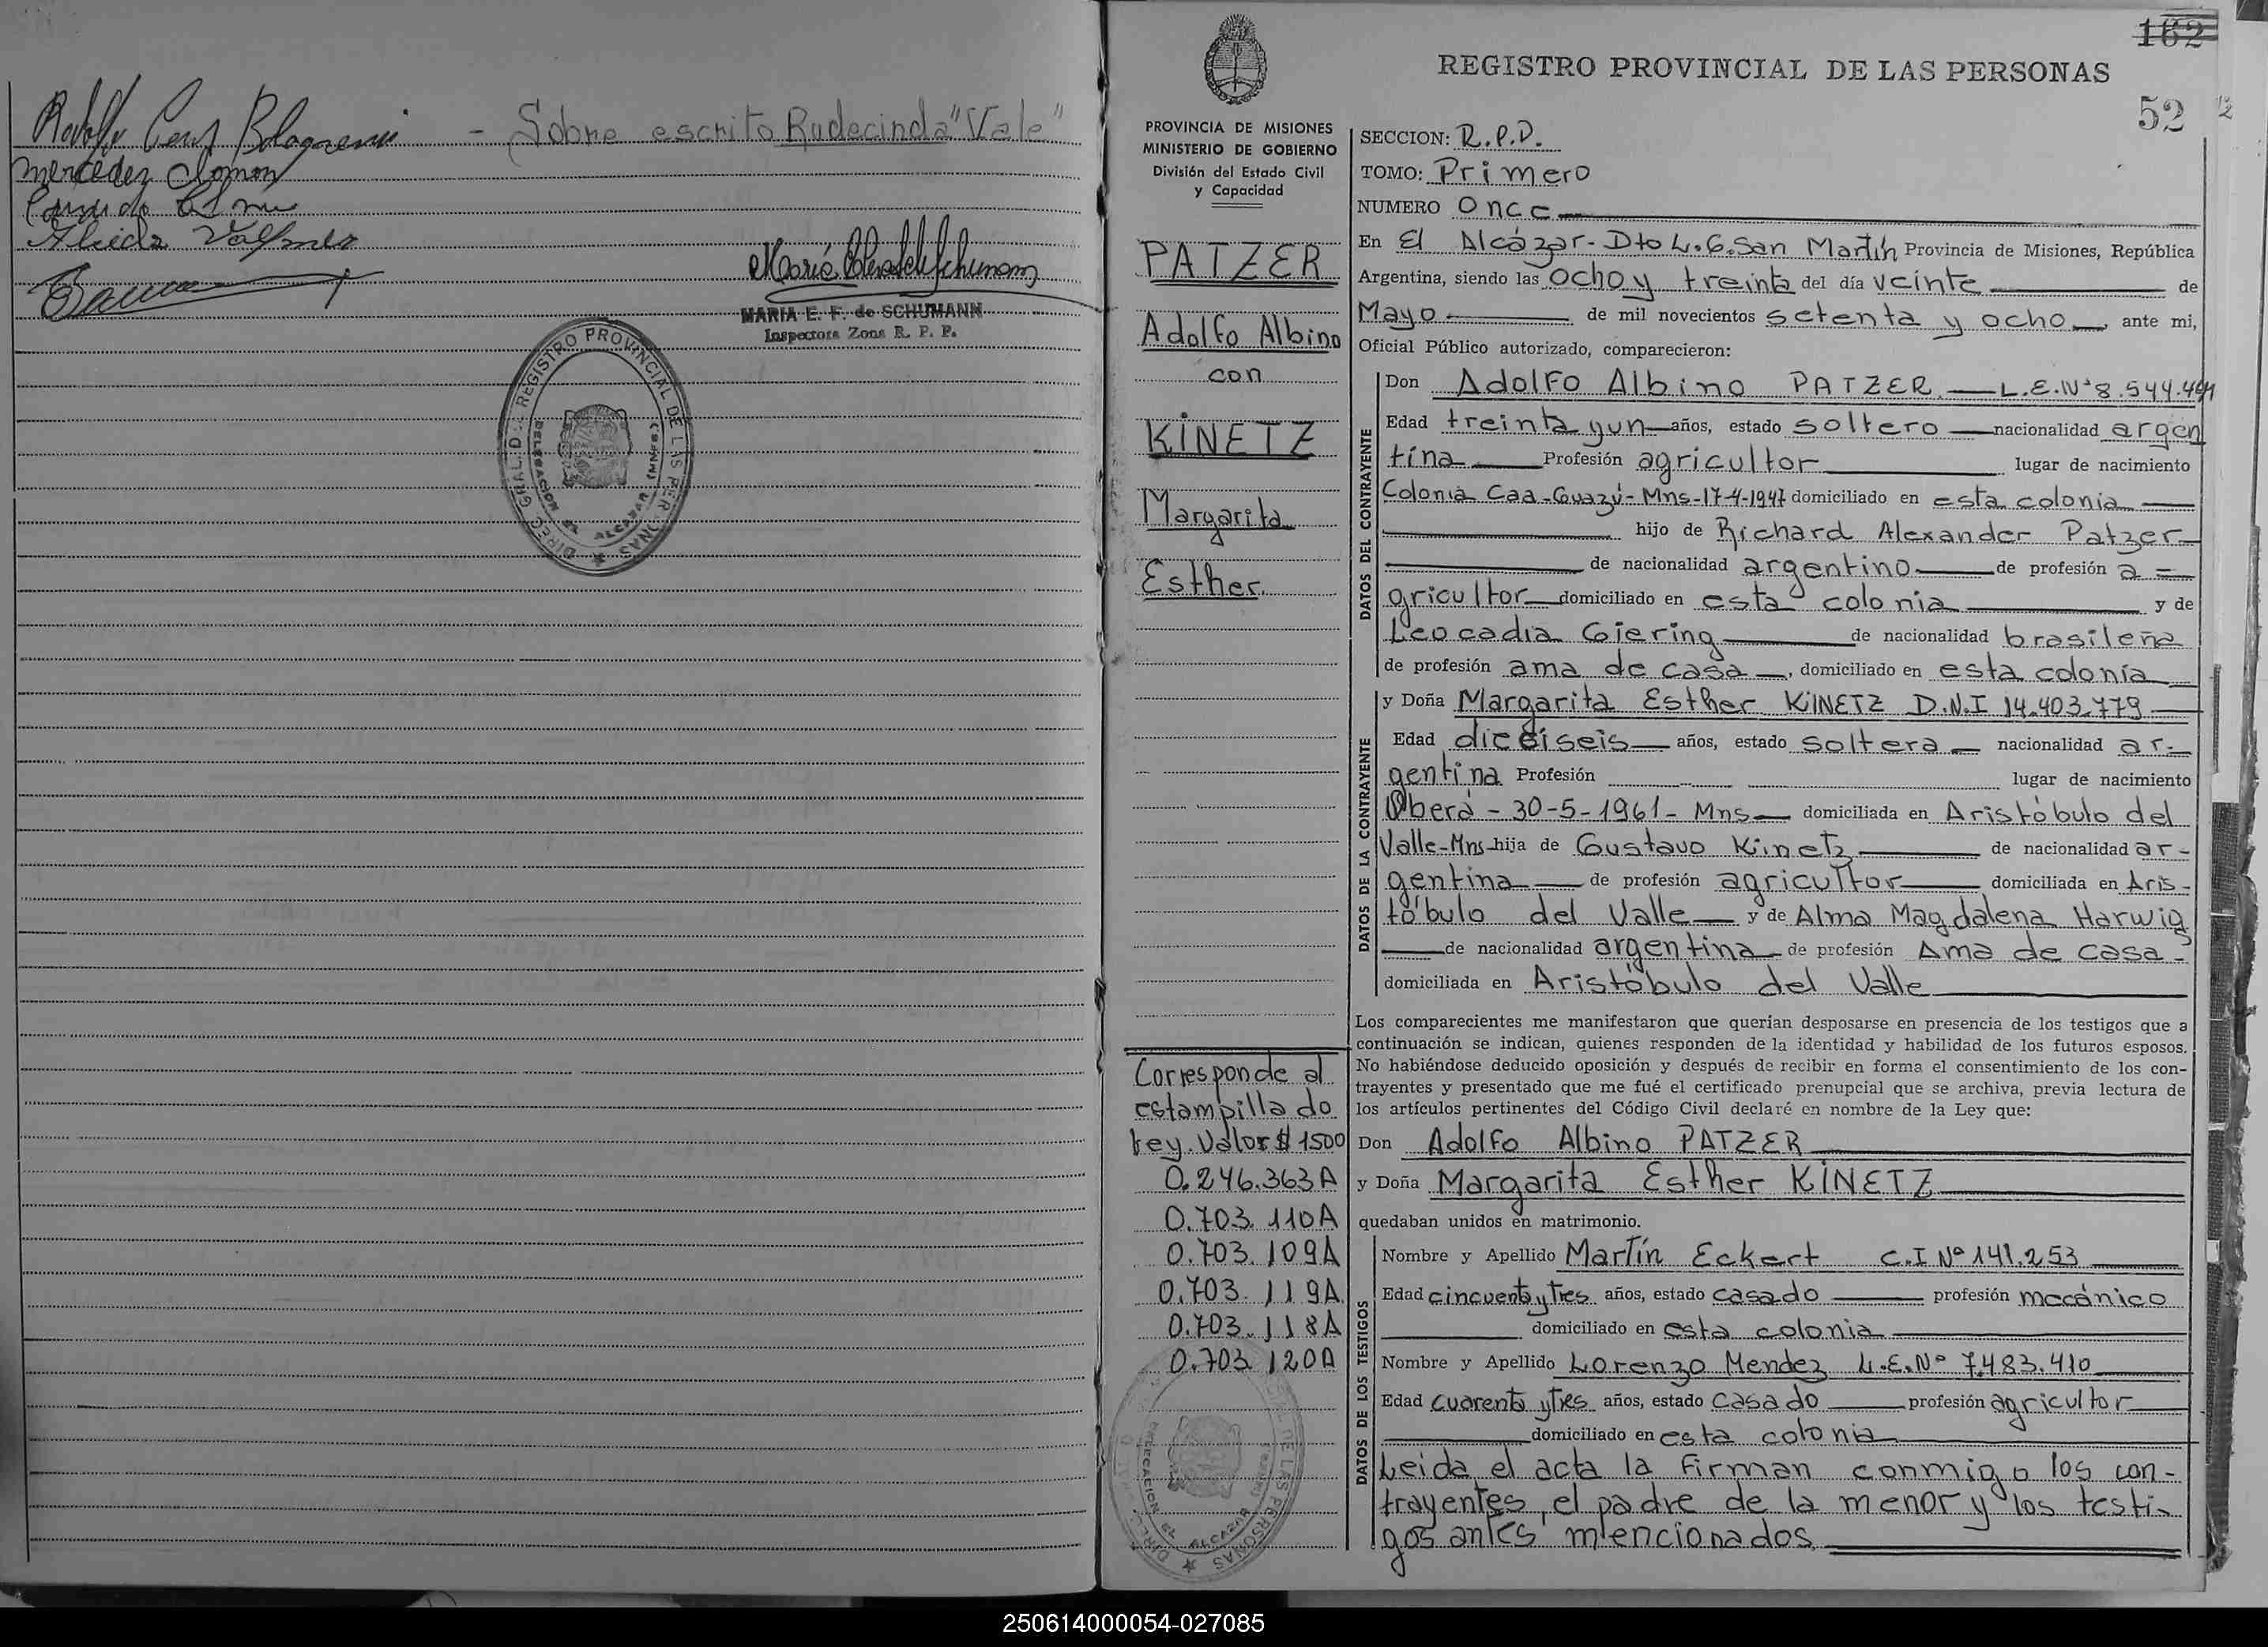 - Sobre escrito Rudecinda "Vale"
Mercedez
MARIA E. F. de SCHUMANN
Inspectora Zona R. P. P.
DIREC. GRAL. D. REGISTRO PROVINCIAL DE LAS PERSONAS
DELEGACION EL ALCAZAR (MNES)
162
REGISTRO PROVINCIAL DE LAS PERSONAS
52
PROVINCIA DE MISIONES
MINISTERIO DE GOBIERNO
División del Estado Civil
y Capacidad
PATZER
Adolfo Albino
con
KINETZ
Margarita
Esther.
Corresponde al
estampillado
Ley. Valor $ 1500
0.246.363A
0.703.110A
0.703.109A
0.703.119A
0.703.118A
0.703.120A
SECCION: R.P.D.
TOMO: Primero
NUMERO Once
En El Alcázar - Dto L.G. San Martín Provincia de Misiones, República
Argentina, siendo las ocho y treinta del día veinte de
Mayo de mil novecientos setenta y ocho, ante mi,
Oficial Público autorizado, comparecieron:
DATOS DEL CONTRAYENTE
Don Adolfo Albino PATZER L.E. Nº 8.544.461
Edad treinta y un años, estado soltero nacionalidad argen
tina Profesión agricultor lugar de nacimiento
Colonia Caa-Guazú - Mns - 17-4-1947 domiciliado en esta colonia
hijo de Richard Alexander Patzer
de nacionalidad argentino de profesión a =
gricultor domiciliado en esta colonia y de
Leocadia Giering de nacionalidad brasileña
de profesión ama de casa, domiciliado en esta colonia
DATOS DE LA CONTRAYENTE
y Doña Margarita Esther KINETZ D.N.I 14.403.779
Edad dieciseis años, estado soltera nacionalidad ar-
gentina Profesión lugar de nacimiento
Oberá - 30-5-1961 - Mns domiciliada en Aristóbulo del
Valle-Mns hija de Gustavo Kinetz de nacionalidad ar-
gentina de profesión agricultor domiciliada en Aris-
tóbulo del Valle y de Alma Magdalena Harwig
de nacionalidad argentina de profesión Ama de casa -
domiciliada en Aristóbulo del Valle
Los comparecientes me manifestaron que querían desposarse en presencia de los testigos que a
continuación se indican, quienes responden de la identidad y habilidad de los futuros esposos.
No habiéndose deducido oposición y después de recibir en forma el consentimiento de los con-
trayentes y presentado que me fué el certificado prenupcial que se archiva, previa lectura de
los artículos pertinentes del Código Civil declaré en nombre de la Ley que:
Don Adolfo Albino PATZER
y Doña Margarita Esther KINETZ
quedaban unidos en matrimonio.
DATOS DE LOS TESTIGOS
Nombre y Apellido Martín Eckert C.I Nº 141.253
Edad cincuenta y tres años, estado casado profesión mecánico
domiciliado en esta colonia
Nombre y Apellido Lorenzo Mendez L.E. Nº 7.483.410
Edad cuarenta y tres años, estado casado profesión agricultor
domiciliado en esta colonia
Leida el acta la firman conmigo los con-
trayentes, el padre de la menor y los testi-
gos antes mencionados
250614000054-027085